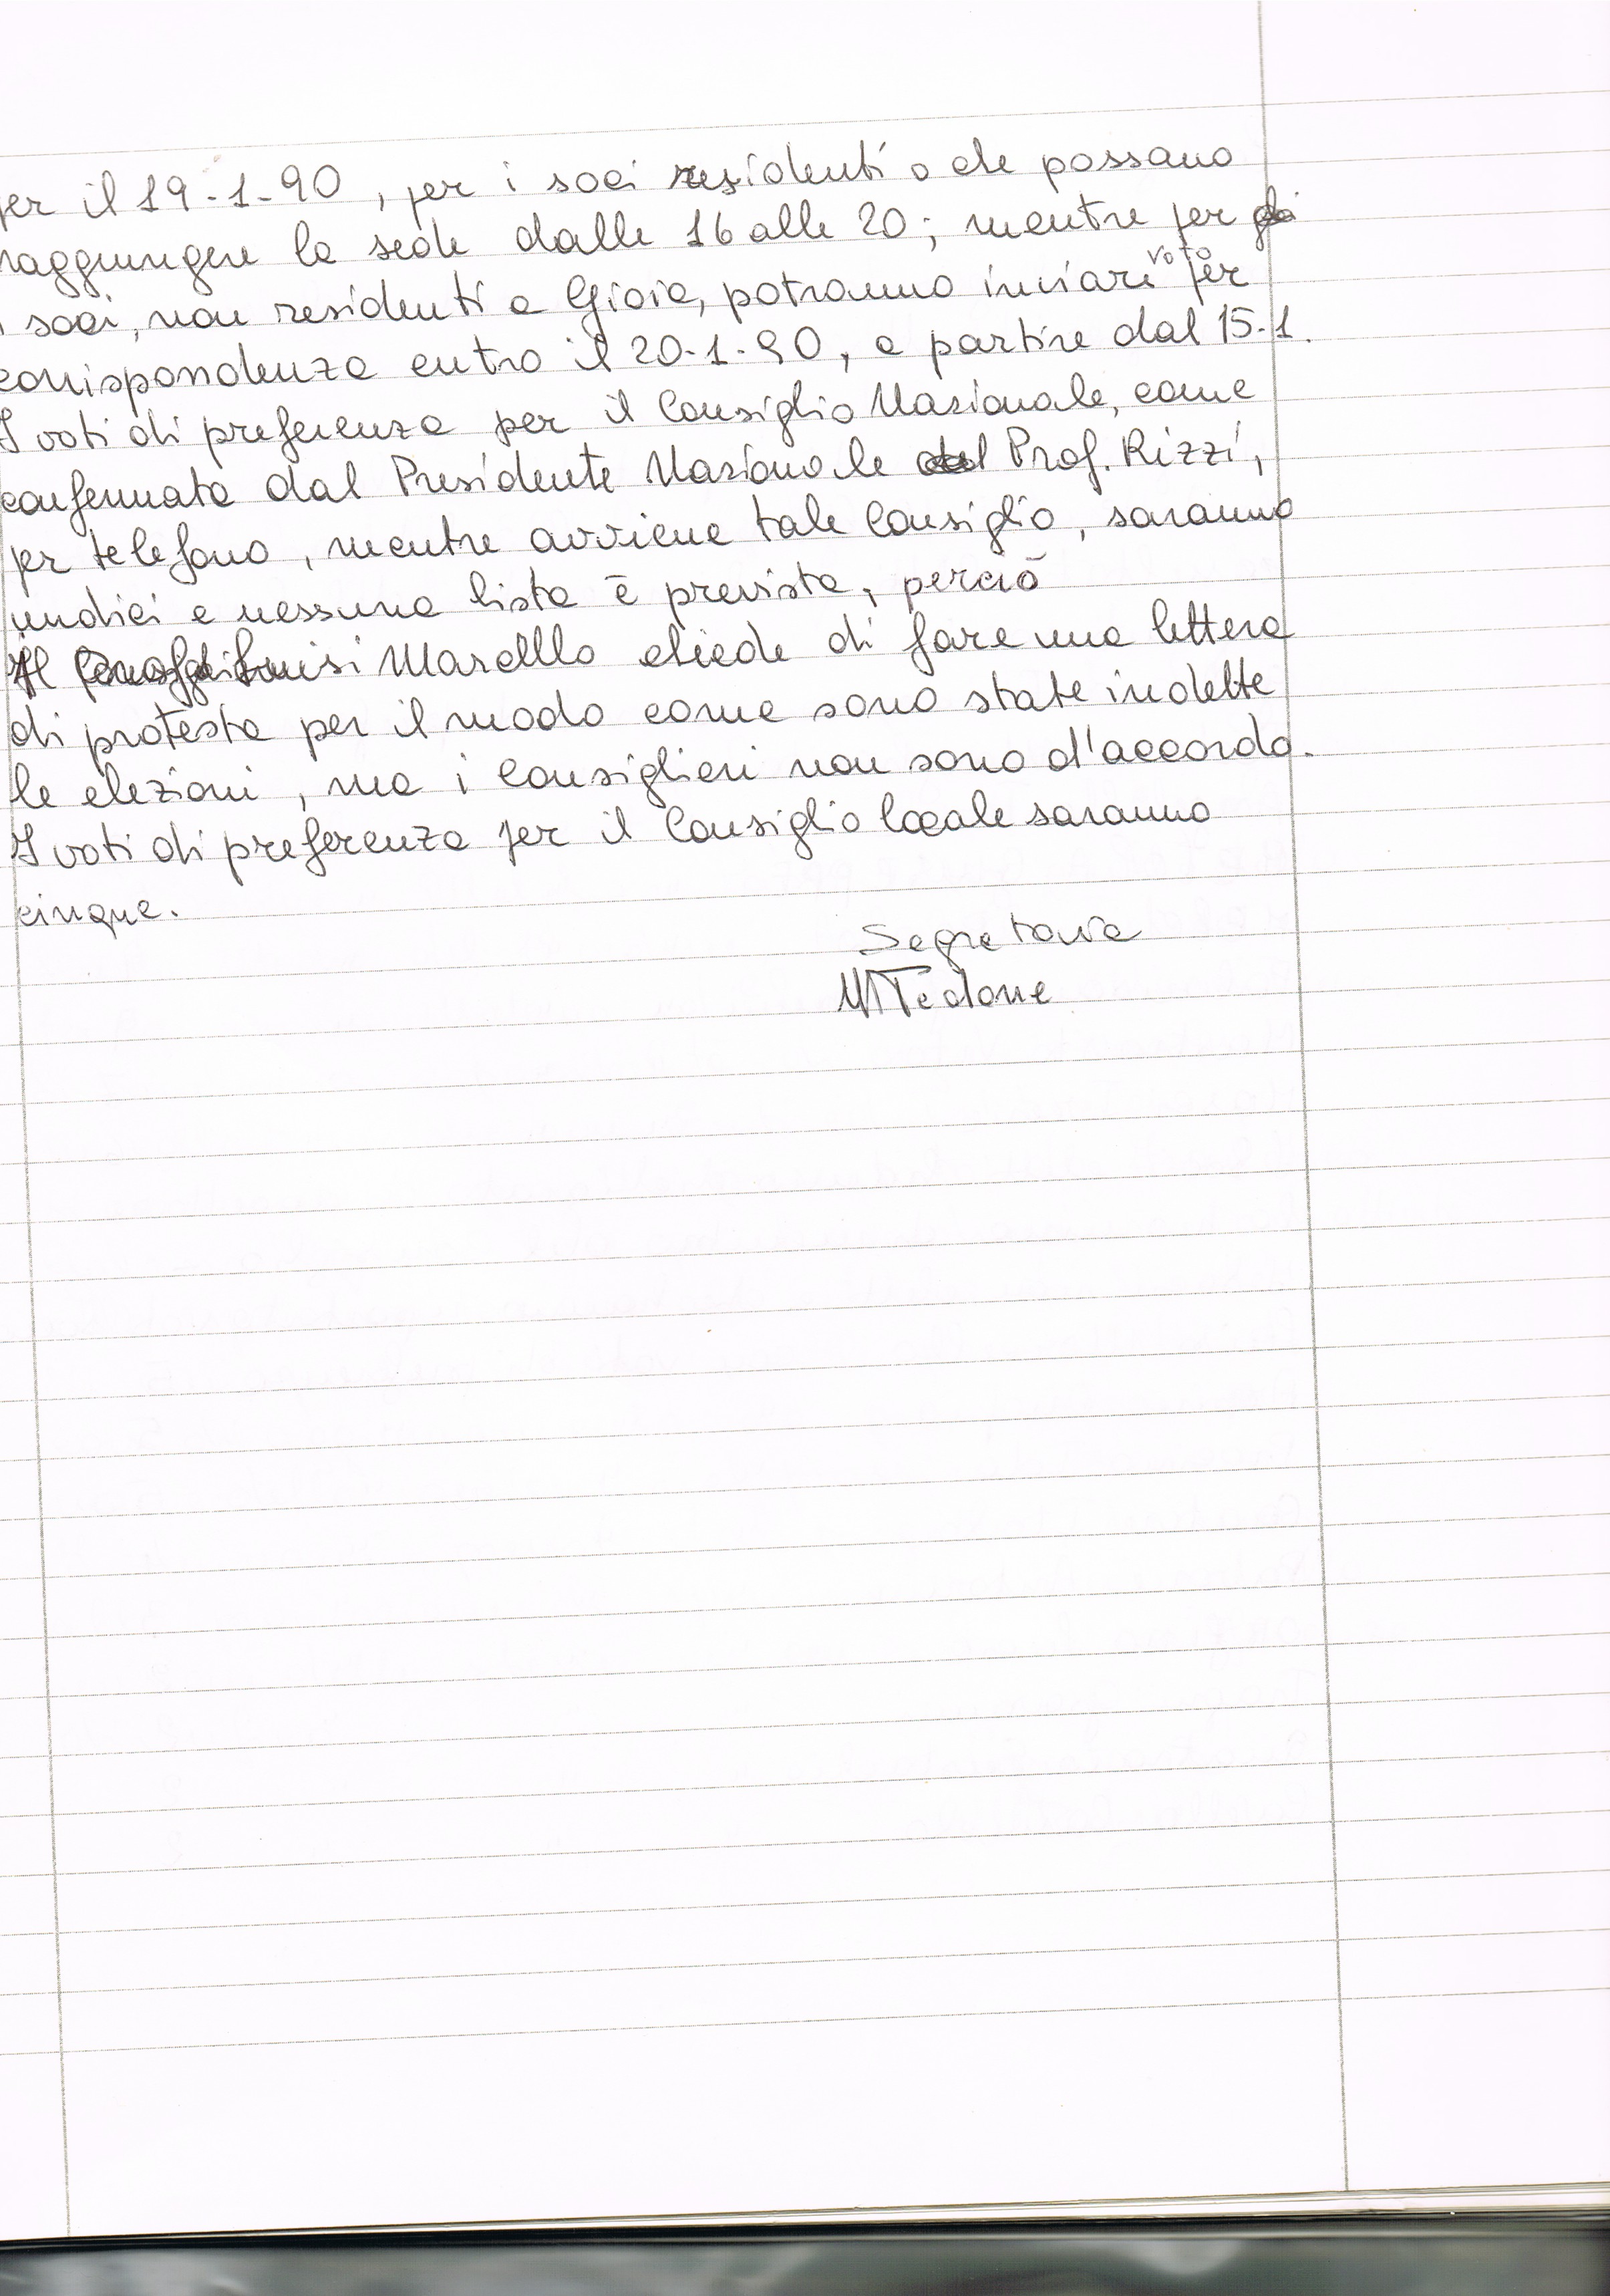 per il 19-1-90, per i soci residenti o che possano
raggiungere la sede dalle 16 alle 20; mentre per
i soci, non residenti a Gioia, potranno inviare voto per
corrispondenza entro il 20-1-90, a partire dal 15-1.
I voti di preferenza per il Consiglio Nazionale, come
confermato dal Presidente Nazionale Prof. Rizzi,
per telefono, mentre avviene tale Consiglio, saranno
undici e nessuna lista è prevista, perciò
Il Marcello chiede di fare una lettera
di protesta per il modo come sono state indette
le elezioni, ma i Consiglieri non sono d'accordo.
I voti di preferenza per il Consiglio locale saranno
cinque.
Segretaria
MTedone